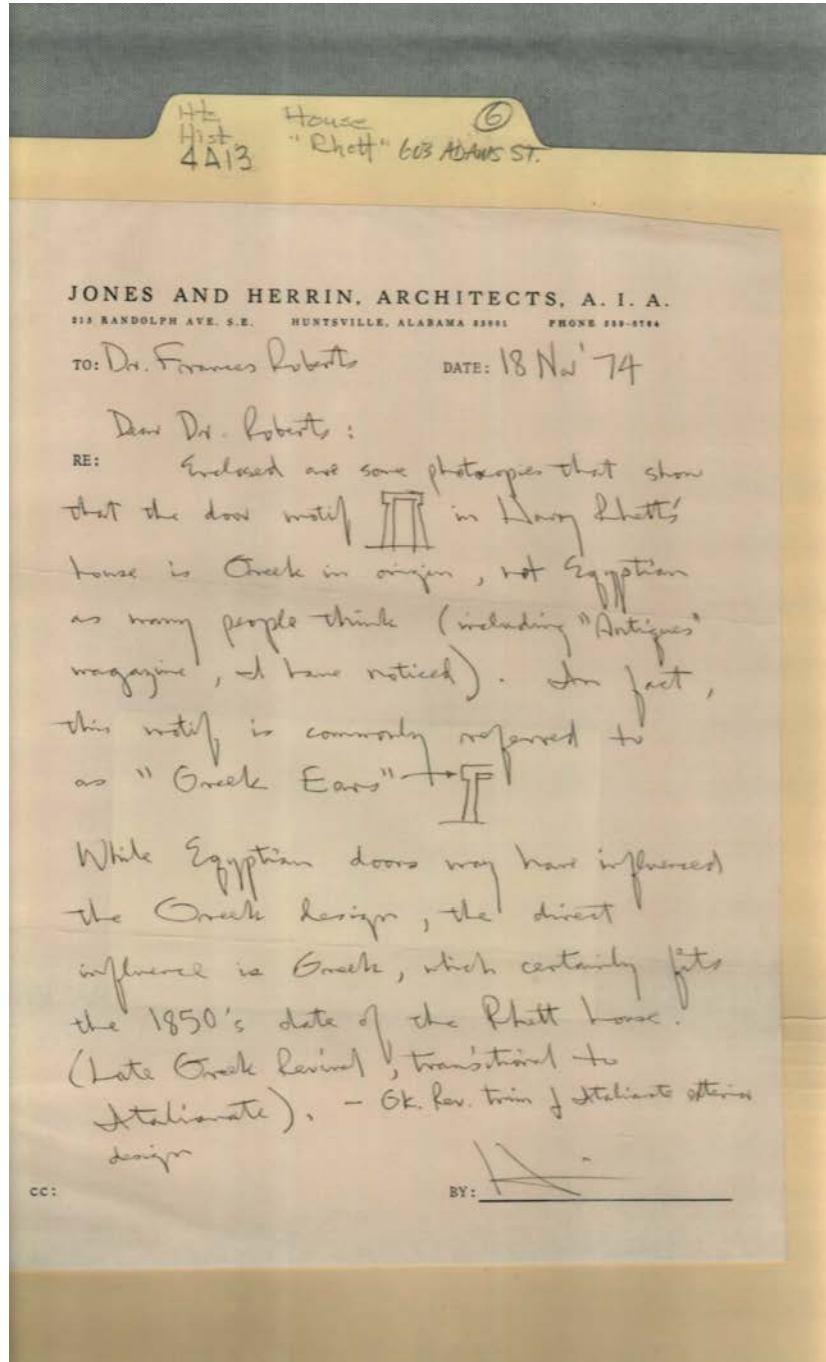 Htz House 6
Hist "Rhett" 603 ADAMS ST.
4A13
JONES AND HERRIN, ARCHITECTS, A. I. A.
215 RANDOLPH AVE. S.E. HUNTSVILLE, ALABAMA PHONE
TO: Dr. Frances Roberts DATE: 18 Nov '74
Dear Dr. Roberts:
RE: Enclosed are some photocopies that show
that the door motif in Harry Rhett's
house is Greek in origin, not Egyptian
as many people think (including "Antiques"
magazine, I have noticed). In fact,
this motif is commonly referred to
as "Greek Ears"
While Egyptian doors may have influenced
the Greek design, the direct
influence is Greek, which certainly fits
the 1850's date of the Rhett house.
(Late Greek Revival, transitional to
Italianate). - Gk. Rev. trim & Italianate exterior
design
CC: BY: